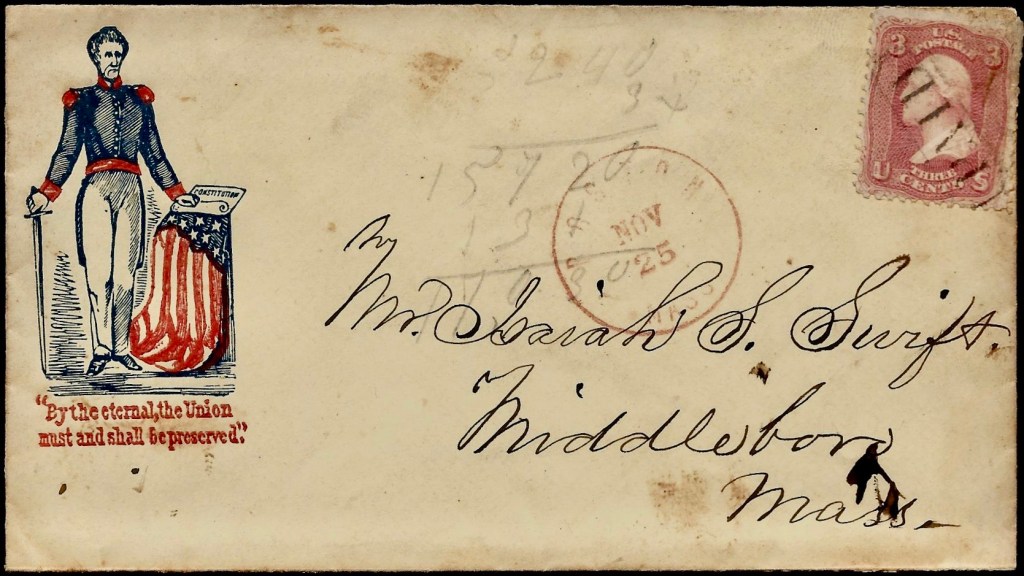 CONSTITUTION
"By the eternal, the Union
must and shall be preserved."
3 U.S. 3
POSTAGE
U THREE S
CENTS
PAID
NOV
25
MASS
Mr. Isaiah S. Swift.
Middleboro
Mass.